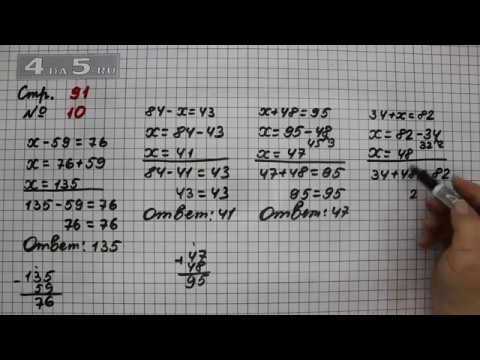 4 DA 5.RU
Стр. 91
№ 10
x - 59 = 76
x = 76 + 59
x = 135
135 - 59 = 76
76 = 76
Ответ: 135
- 135
59
76
84 - x = 43
x = 84 - 43
x = 41
84 - 41 = 43
43 = 43
Ответ: 41
+ 47
48
95
x + 48 = 95
x = 95 - 48
x = 47
47 + 48 = 95
95 = 95
Ответ: 47
34 + x = 82
x = 82 - 34
x = 48
34 + 48 = 82
2